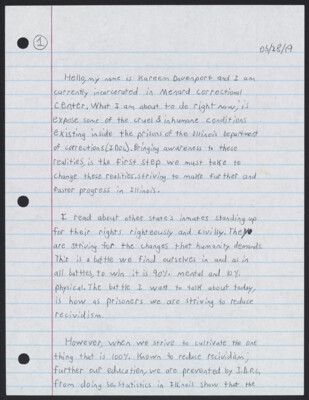 1
05/28/19
Hello, my name is Kareem Davenport and I am
currently incarcerated in Menard Correctional
Center. What I am about to do right now, is
expose some of the cruel & inhumane conditions
existing inside the prisons of the Illinois Department
of corrections (IDOC). Bringing awareness to these
realities, is the first step we must take to
change these realities. Striving to make further and
faster progress in Illinois.
I read about other state's inmates standing up
for their rights righteously and civilly. They
are striving for the changes that humanity demands.
This is a battle we find ourselves in and as in
all battles, to win it is 90% mental and 10%
physical. The battle I want to talk about today,
is how as prisoners we are striving to reduce
recividism.
However, when we strive to cultivate the one
thing that is 100% known to reduce recividism;
further our education, we are prevented by I.D.O.C.
from doing so. Statistics in Illinois show that the